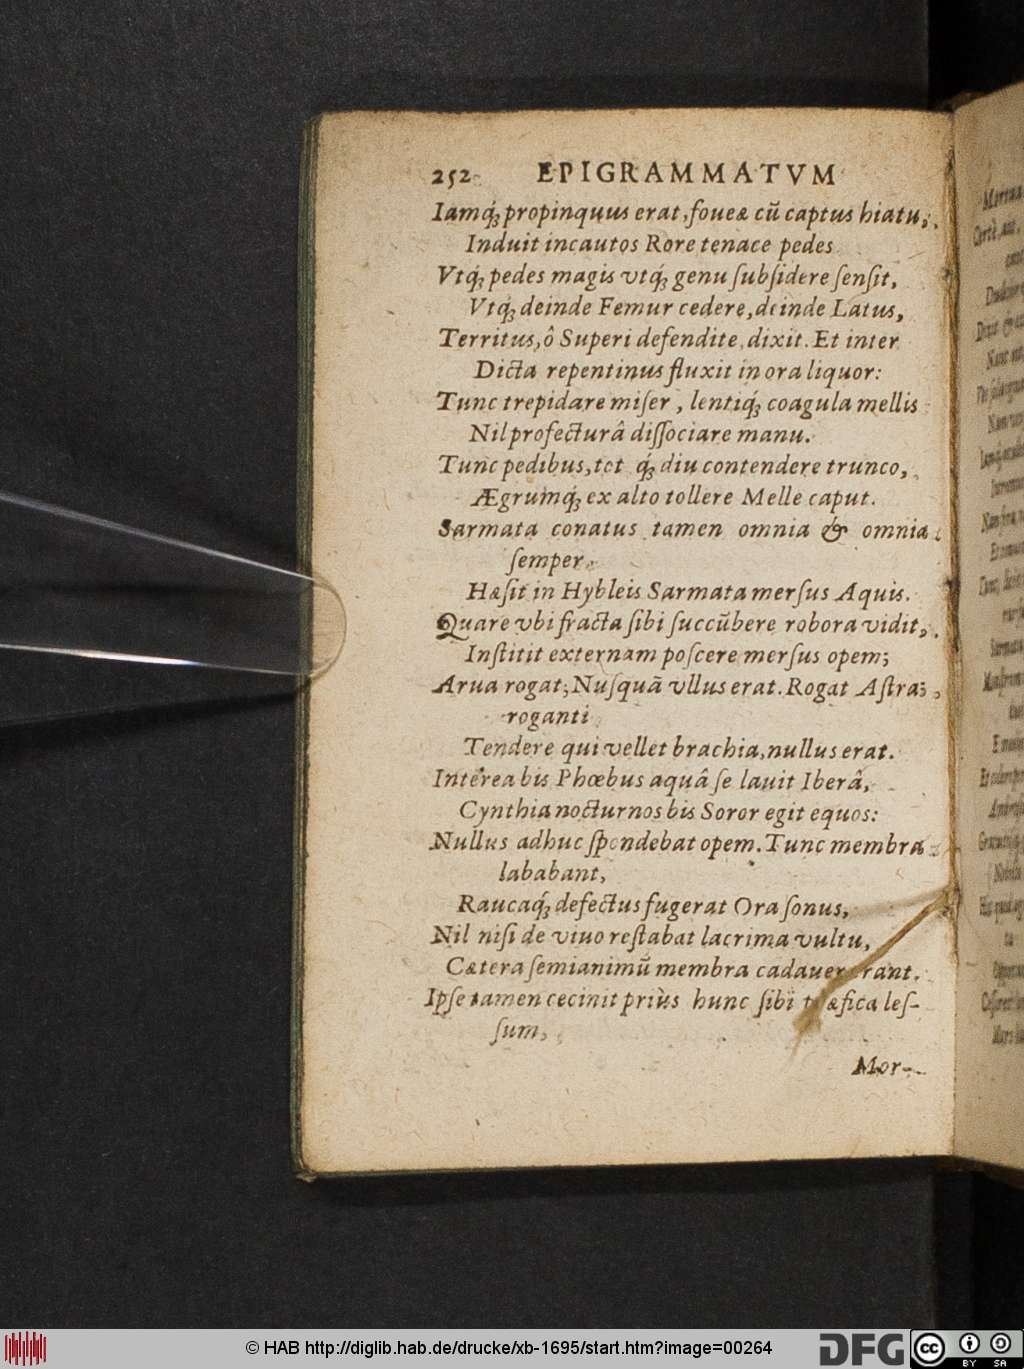 252 EPIGRAMMATVM
Iamq́; propinquus erat, foueæ cū captus hiatu,
Induit incautos Rore tenace pedes.
Vtq́; pedes magis vtq́; genu subsidere sensit,
Vtq́; deinde Femur cedere, deinde Latus,
Territus, ô Superi defendite, dixit. Et inter
Dicta repentinus fluxit in ora liquor:
Tunc trepidare miser, lentiq́; coagula mellis
Nil profecturâ dissociare manu.
Tunc pedibus, tot q́; diu contendere trunco,
Ægrumq́; ex alto tollere Melle caput.
Sarmata conatus tamen omnia & omnia
semper.
Hæsit in Hybleis Sarmata mersus Aquis.
Quare vbi fracta sibi succūbere robora vidit,
Institit externam poscere mersus opem;
Arua rogat; Nusquā vllus erat. Rogat Astra;
roganti
Tendere qui vellet brachia, nullus erat.
Intérea bis Phœbus aquâ se lauit Iberâ,
Cynthia nocturnos bis Soror egit equos:
Nullus adhuc spondebat opem. Tunc membra
lababant,
Raucaq́; defectus fugerat Ora sonus,
Nil nisi de viuo restabat lacrima vultu,
Cætera semianimū membra cadauer erant.
Ipse tamen cecinit priùs hunc sibi les-
sum,
Mor-
© HAB http://diglib.hab.de/drucke/xb-1695/start.htm?image=00264
DFG
cc
BY SA